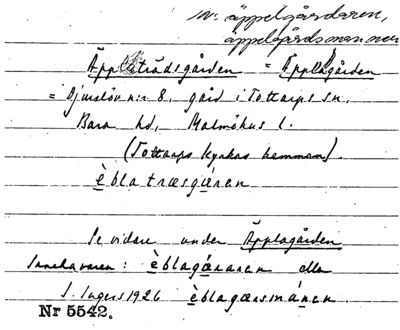 N: äppelgårdaren,
äppelgårdsmannen
Äppleträdsgården = Äpplagården
= Djurslöv n:r 8, gård i Tottarps sn,
Bara hd, Malmöhus l.
(Tottarps kyrkas hemman).
è̲blatræsgá̲ran
Se vidare under Äpplagården
Innehavaren: è̲blagá̲raran eller
I. Ingers 1926 è̲blagærsmá̲nan.
Nr 5542.